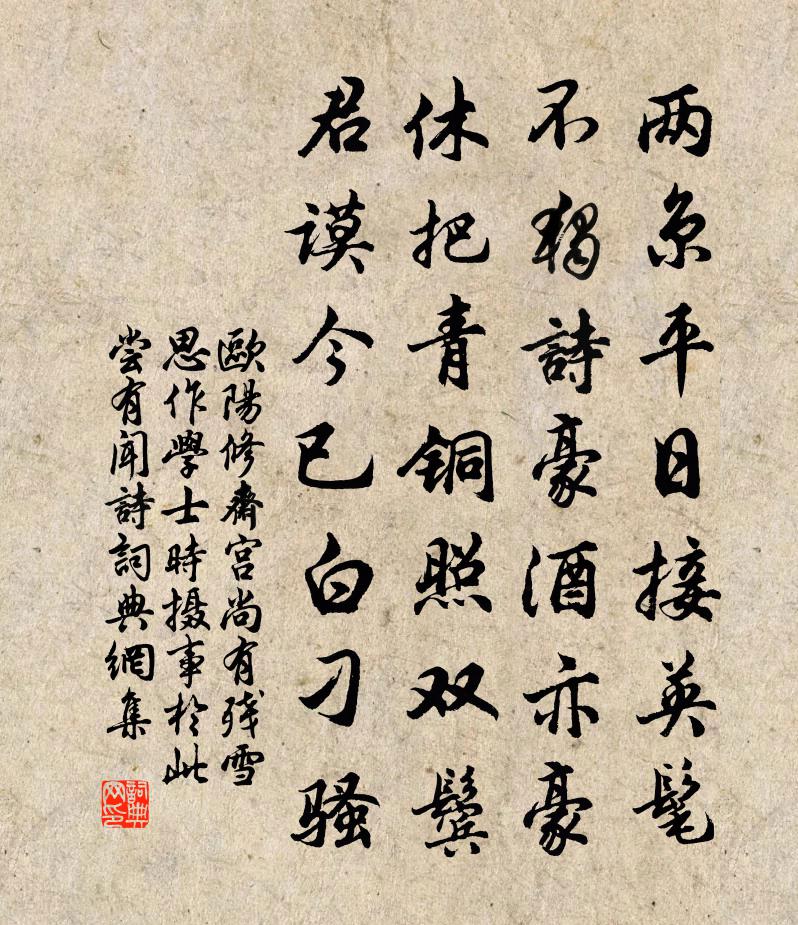 两京平日接英髦
不独詩豪酒亦豪
休把青铜照双鬓
君谟今已白刁骚
歐陽修齋宫尚有残雪
思作學士時摄事於此
尝有闻詩詞典網集
詞典网印